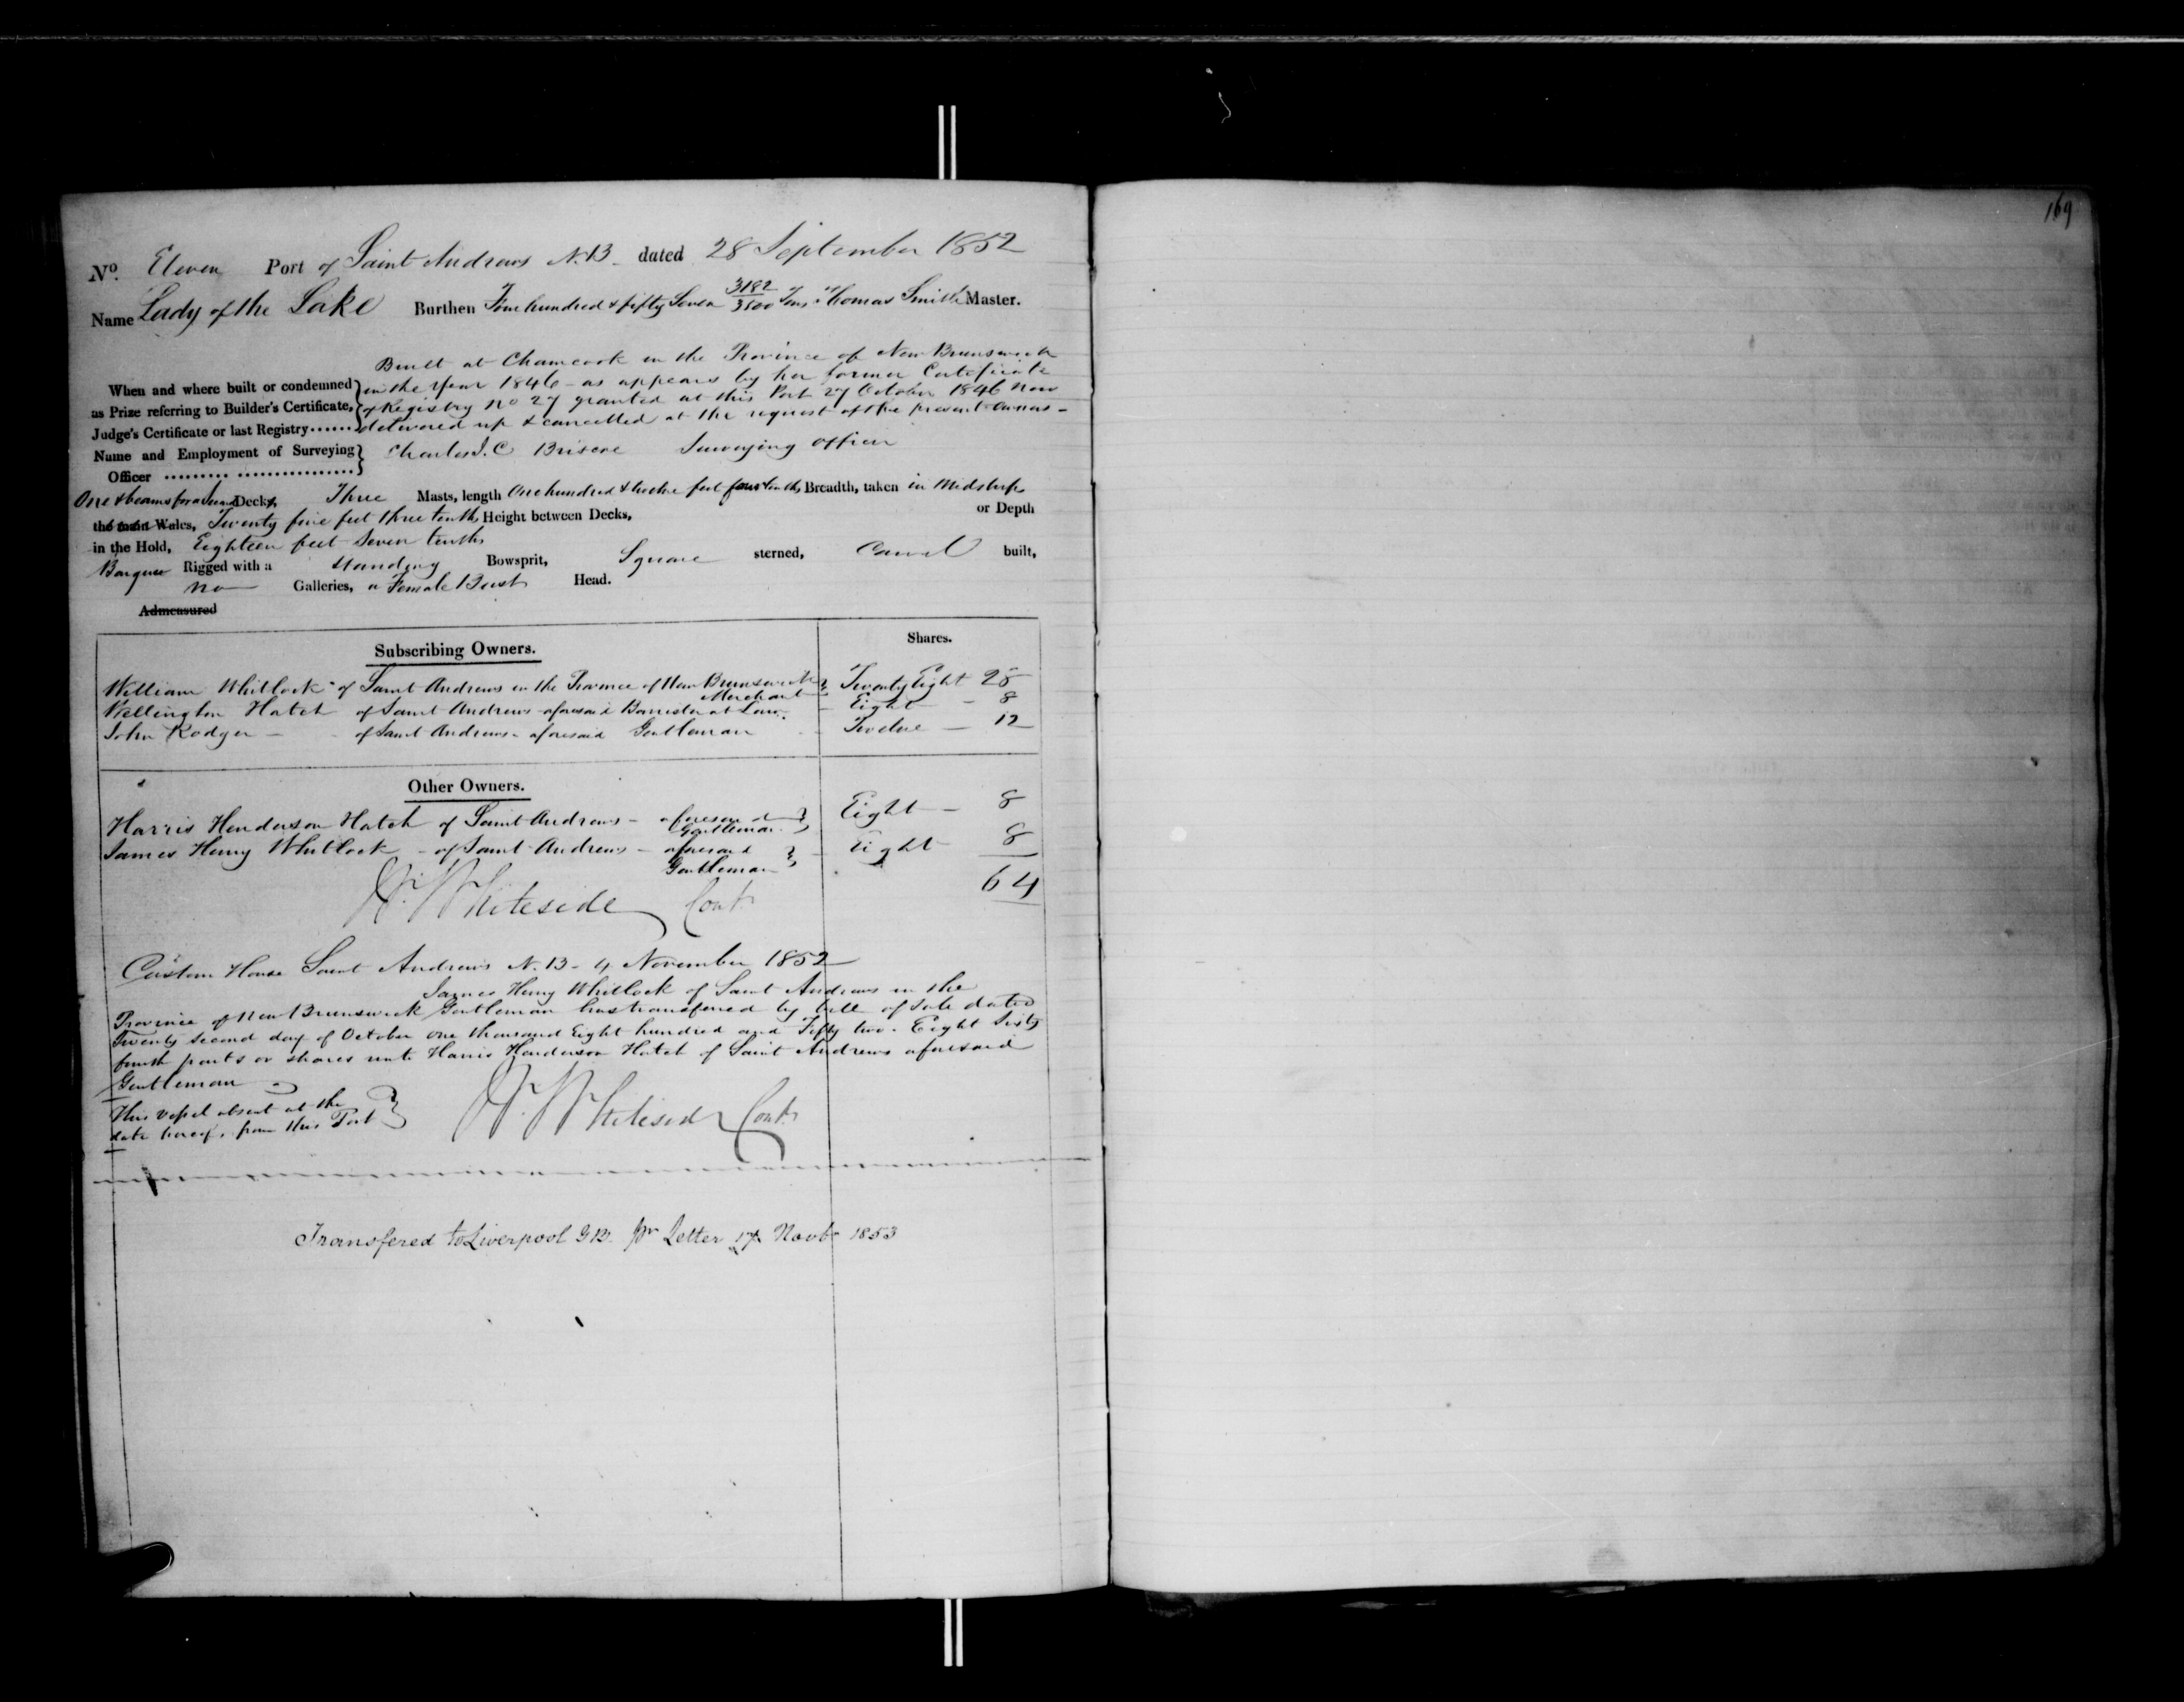 169
No. Eleven Port of Saint Andrews N.B. dated 28 September 1852
Name Lady of the Lake Burthen Four hundred & fifty Seven 3182/3500 Tons Thomas Smith Master.
Built at Chamcook in the Province of New Brunswick
When and where built or condemned } in the Year 1846 - as appears by her former Certificate
as Prize referring to Builder's Certificate, } of Registry No 27 granted at this Port 27 October 1846 now
Judge's Certificate or last Registry...... } delivered up & cancelled at the request of the present owners -
Name and Employment of Surveying } Charles J. C Briscoe Surveying officer
Officer ......... ................ }
One & beams for a Second Decks, Three Masts, length One hundred & twelve feet four tenths Breadth, taken in Midships
the main Wales, Twenty five feet three tenths Height between Decks, or Depth
in the Hold, Eighteen feet Seven tenths
Barque Rigged with a Standing Bowsprit, Square sterned, Carvel built,
no Galleries, a Female Bust Head.
Admeasured
Subscribing Owners. Shares.
William Whitlock of Saint Andrews in the Province of New Brunswick } Twenty Eight 28
Merchant
Wellington Hatch of Saint Andrews aforesaid Barrister at Law. - Eight - 8
John Rodger - of Saint Andrews - aforesaid Gentleman Twelve - 12
Other Owners.
Harris Henderson Hatch of Saint Andrews - aforesaid } Eight - 8
Gentleman
James Henry Whitlock - of Saint Andrews - aforesaid } - Eight 8
Gentleman
64
W. Whiteside Cont.
Custom House Saint Andrews N.B - 4 November 1852
James Henry Whitlock of Saint Andrews in the
Province of New Brunswick Gentleman has transfered by bill of Sale dated
Twenty second day of October one thousand Eight hundred and Fifty two. Eight Sixty
fourth parts or shares unto Harris Henderson Hatch of Saint Andrews aforesaid
Gentleman
This vessel absent at the }
date hereof, from this Port }
W. Whiteside Cont.
Transfered to Liverpool G.B. pr Letter 17 Novbr 1853